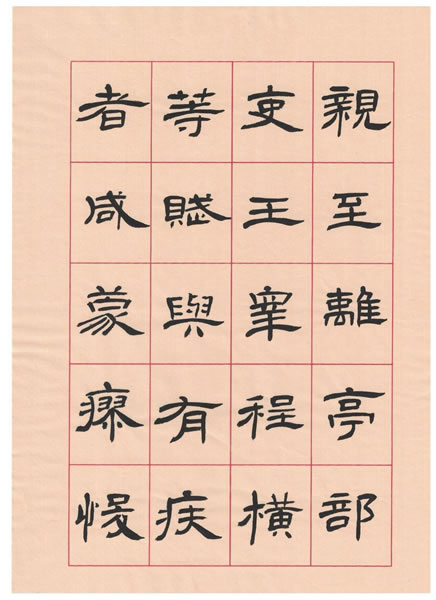 親至離亭部
吏王皋程橫
等賦與有疾
者咸蒙瘳悛